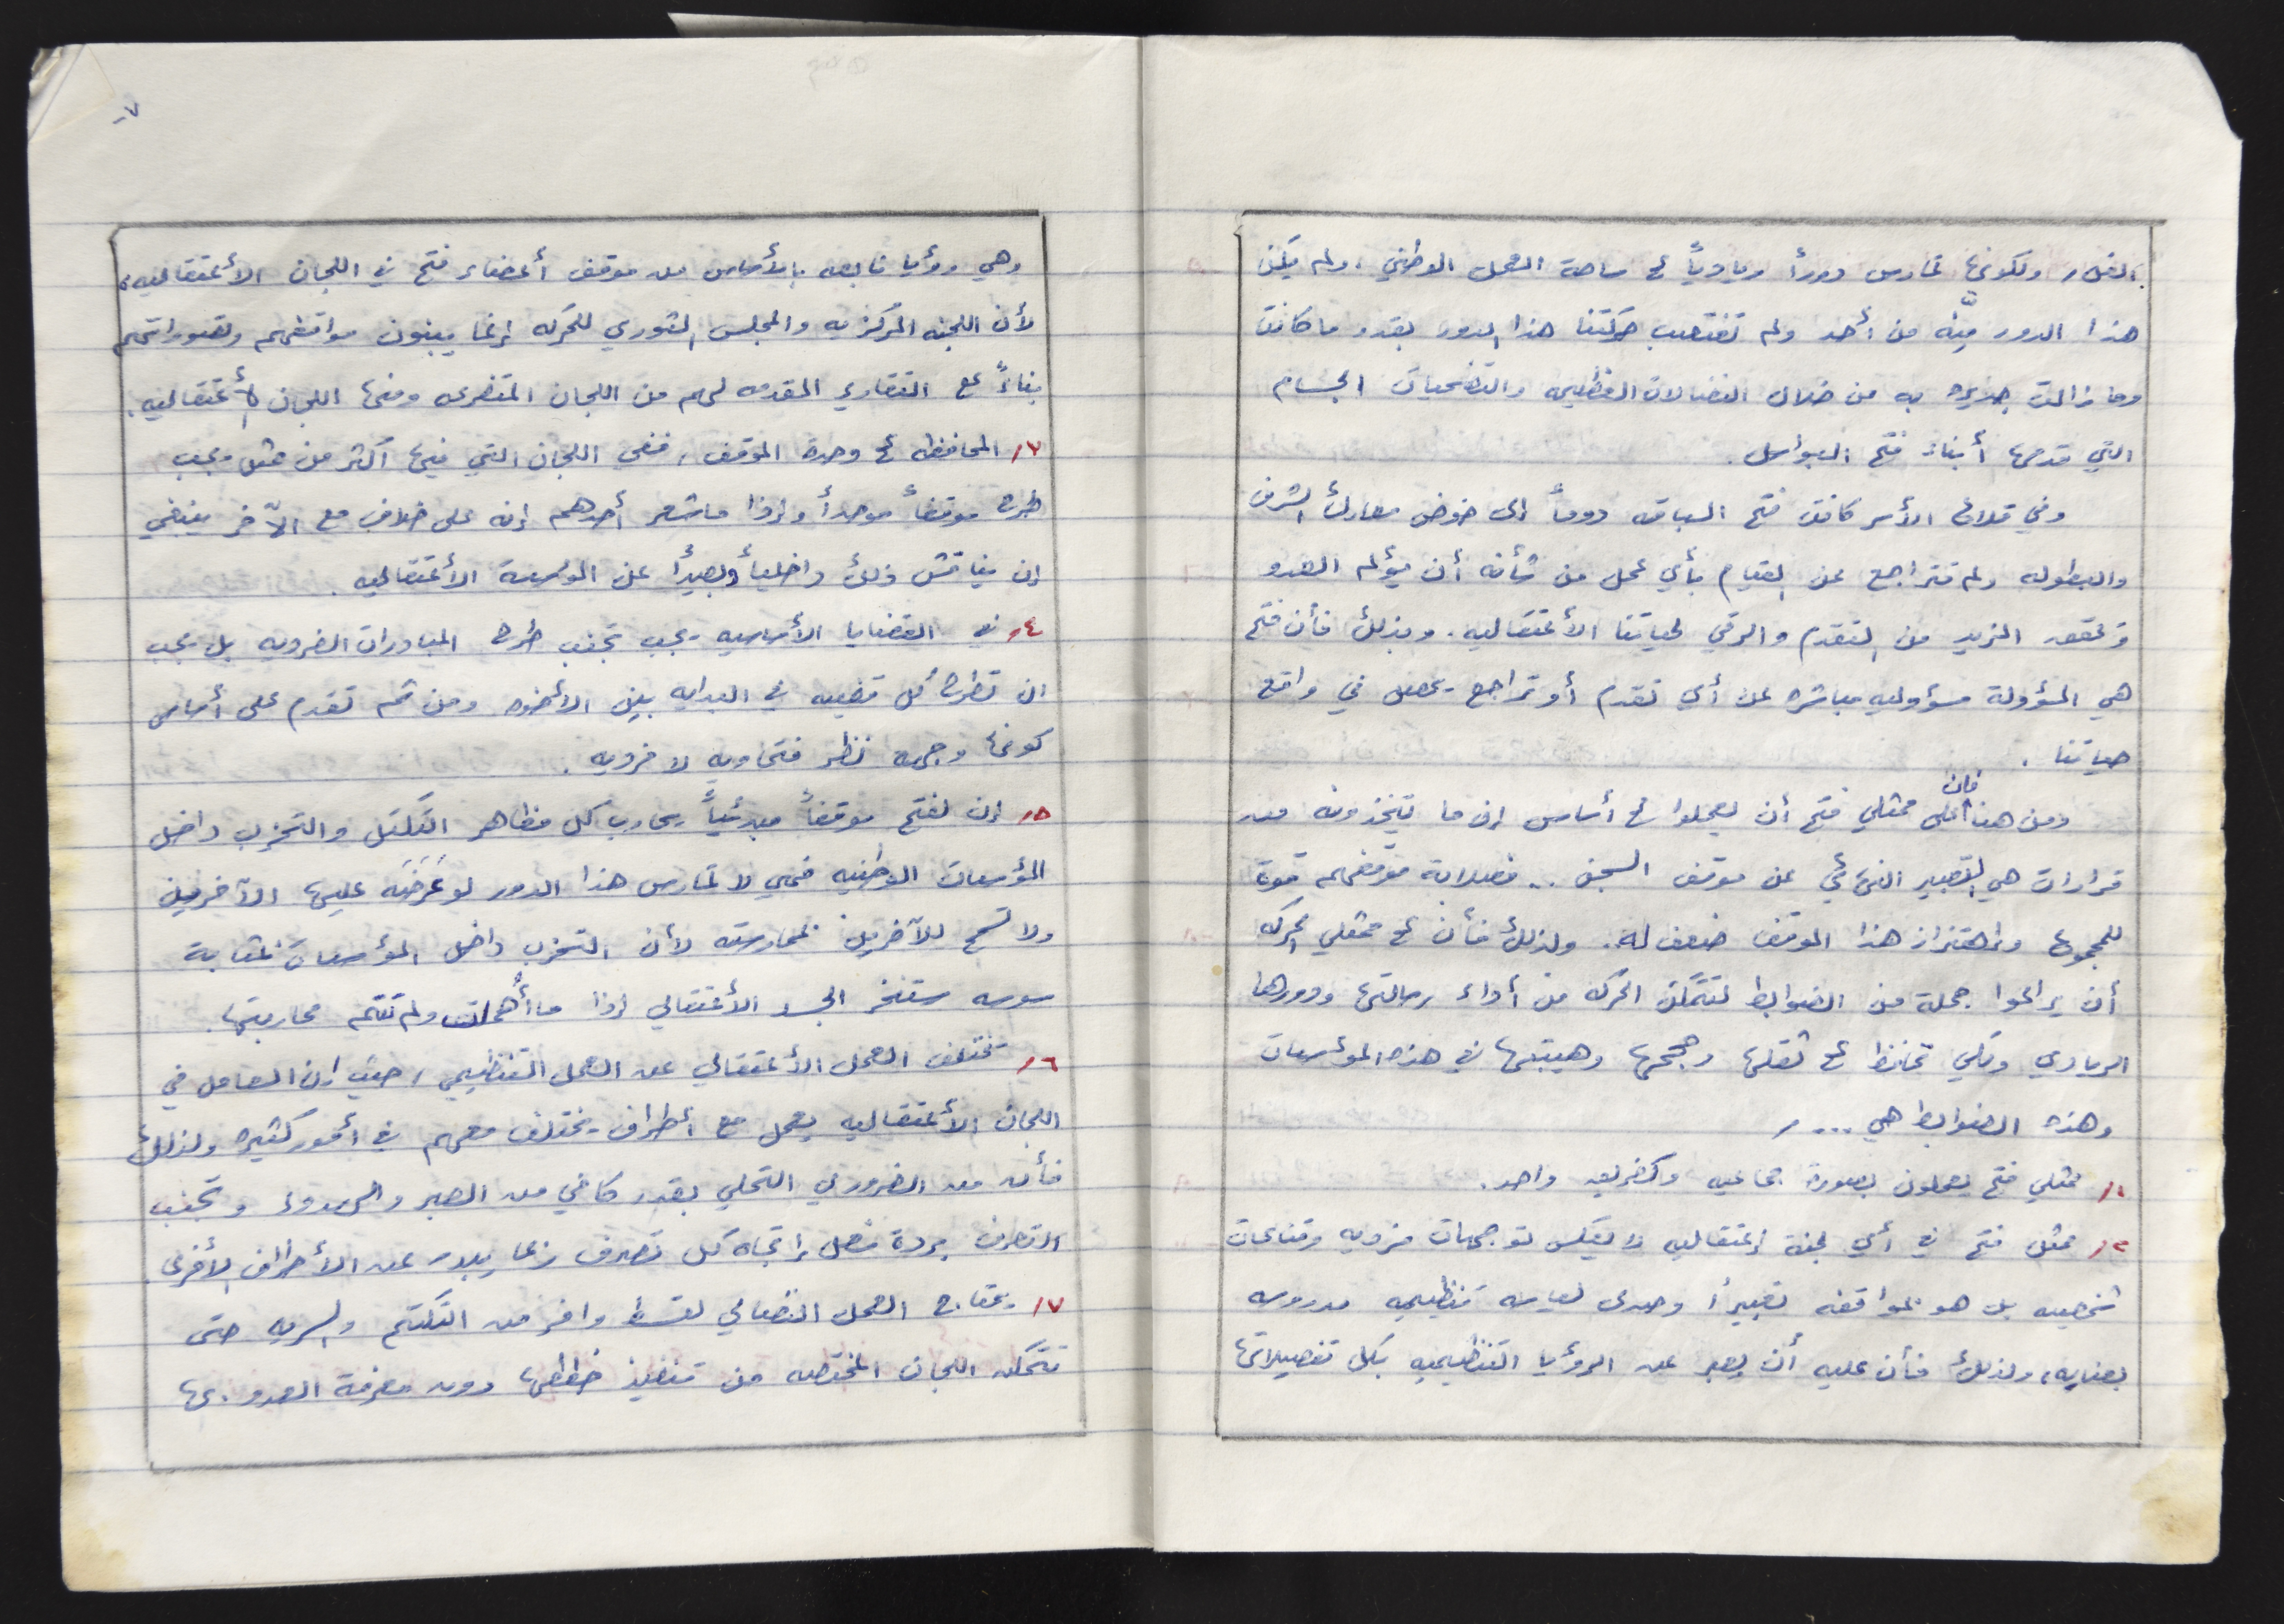 ولكونها تمارس دوراً وريادياً ع ساحة العمل الوطني، ولم يكن
هذا الدور مِنَّه من أحد ولم تغتصب حركتنا هذا الدور بقدر ما كانت
وما زالت جديره به من خلال النضالات العظيمه والتضحيات الجسام
التي قدمها أبناء فتح البواسل.
وفي قلاع الأسر كانت فتح السباقه دوماً الى خوض معارك الشرف
والبطوله ولم تتراجع عن القيام بأي عمل من شأنه أن يؤلم العدو
ويحقق المزيد من التقدم والرقي لحياتنا الأعتقاليه. وبذلك فأن فتح
هي المسؤولة مسؤوليه مباشره عن أي تقدم أو تراجع يحصل في واقع
حياتنا.
ومن هنا فان على ممثلي فتح أن يعملوا ع أساس إن ما يتخذونه من
قرارات هي التعبير النهائي عن موقف السجن .. فصلابة موقفهم قوة
للمجموع وإهتزاز هذا الموقف ضعف له. ولذلك فأن ع ممثلي الحركه
أن يراعوا جملة من الضوابط لتتمكن الحركه من أداء رسالتها ودورها
الريادي ولكي تحافظ ع ثقلها وحجمها وهيبتها في هذه المؤسسات
وهذه الضوابط هي ... /
١/ ممثلي فتح يعملون بصورة جماعيه وكفريق واحد.
٢/ ممثل فتح في أي لجنة إعتقاليه لا يعكس توجهات فرديه وقناعات
شخصيه بل هو بمواقفه تعبيراً وصدى لسياسه تنظيميه مدروسه
بعنايه، ولذلك فأن عليه أن يعبر عن الرؤيا التنظيميه بكل تفصيلاتها
٧-
وهي رؤيا نابعه بالأساس من موقف أعضاء فتح في اللجان الأعتقاليه،
لأن اللجنه المركزيه والمجلس الثوري للحركه إنما يبنون مواقفهم وتصوراتهم
بناءً ع التقارير المقدمه لهم من اللجان المتفرعه ومنها اللجان الأعتقاليه.
٣/ المحافظه ع وحدة الموقف، ففي اللجان التي فيها أكثر من ممثل يجب
طرح موقفاً موحداً وإذا ما شعر أحدهم إنه على خلاف مع الآخر ينبغي
إن يناقش ذلك داخلياً وبعيداً عن المؤسسة الأعتقاليه.
٤/ في القضايا الأساسيه يجب تجنب طرح المبادرات الفرديه بل يجب
ان تطرح كل قضيه في البدايه بين الأخوه ومن ثم تقدم على أساس
كونها وجهة نظر فتحاويه لا فرديه.
٥/ إن لفتح موقفاً مبدئياً يحارب كل مظاهر التكتل والتحزب داخل
المؤسسات الوطنيه فهي لا تمارس هذا الدور لو عَرَضَه عليها الآخرين
ولا تسمح للآخرين بممارسته لأن التحزب داخل المؤسسات بمثابة
سوسه ستنخر الجسد الأعتقالي إذا ما أُهملت ولم تتم محاربتها.
٦/ يختلف العمل الأعتقالي عن العمل التنظيمي، حيث إن العامل في
اللجان الأعتقاليه يعمل مع أطراف يختلف معهم في أمور كثيره ولذلك
فأن من الضروري التحلي بقدر كافي من الصبر والهدوء وتجنب
التصرف بردة فعل إتجاه كل تصرف ربما يبدر عن الأطراف الأخرى
٧/ يحتاج العمل النضالي لقسط وافر من التكتم والسريه حتى
تتمكن اللجان المختصه من تنفيذ خططها دون معرفة العدو بها